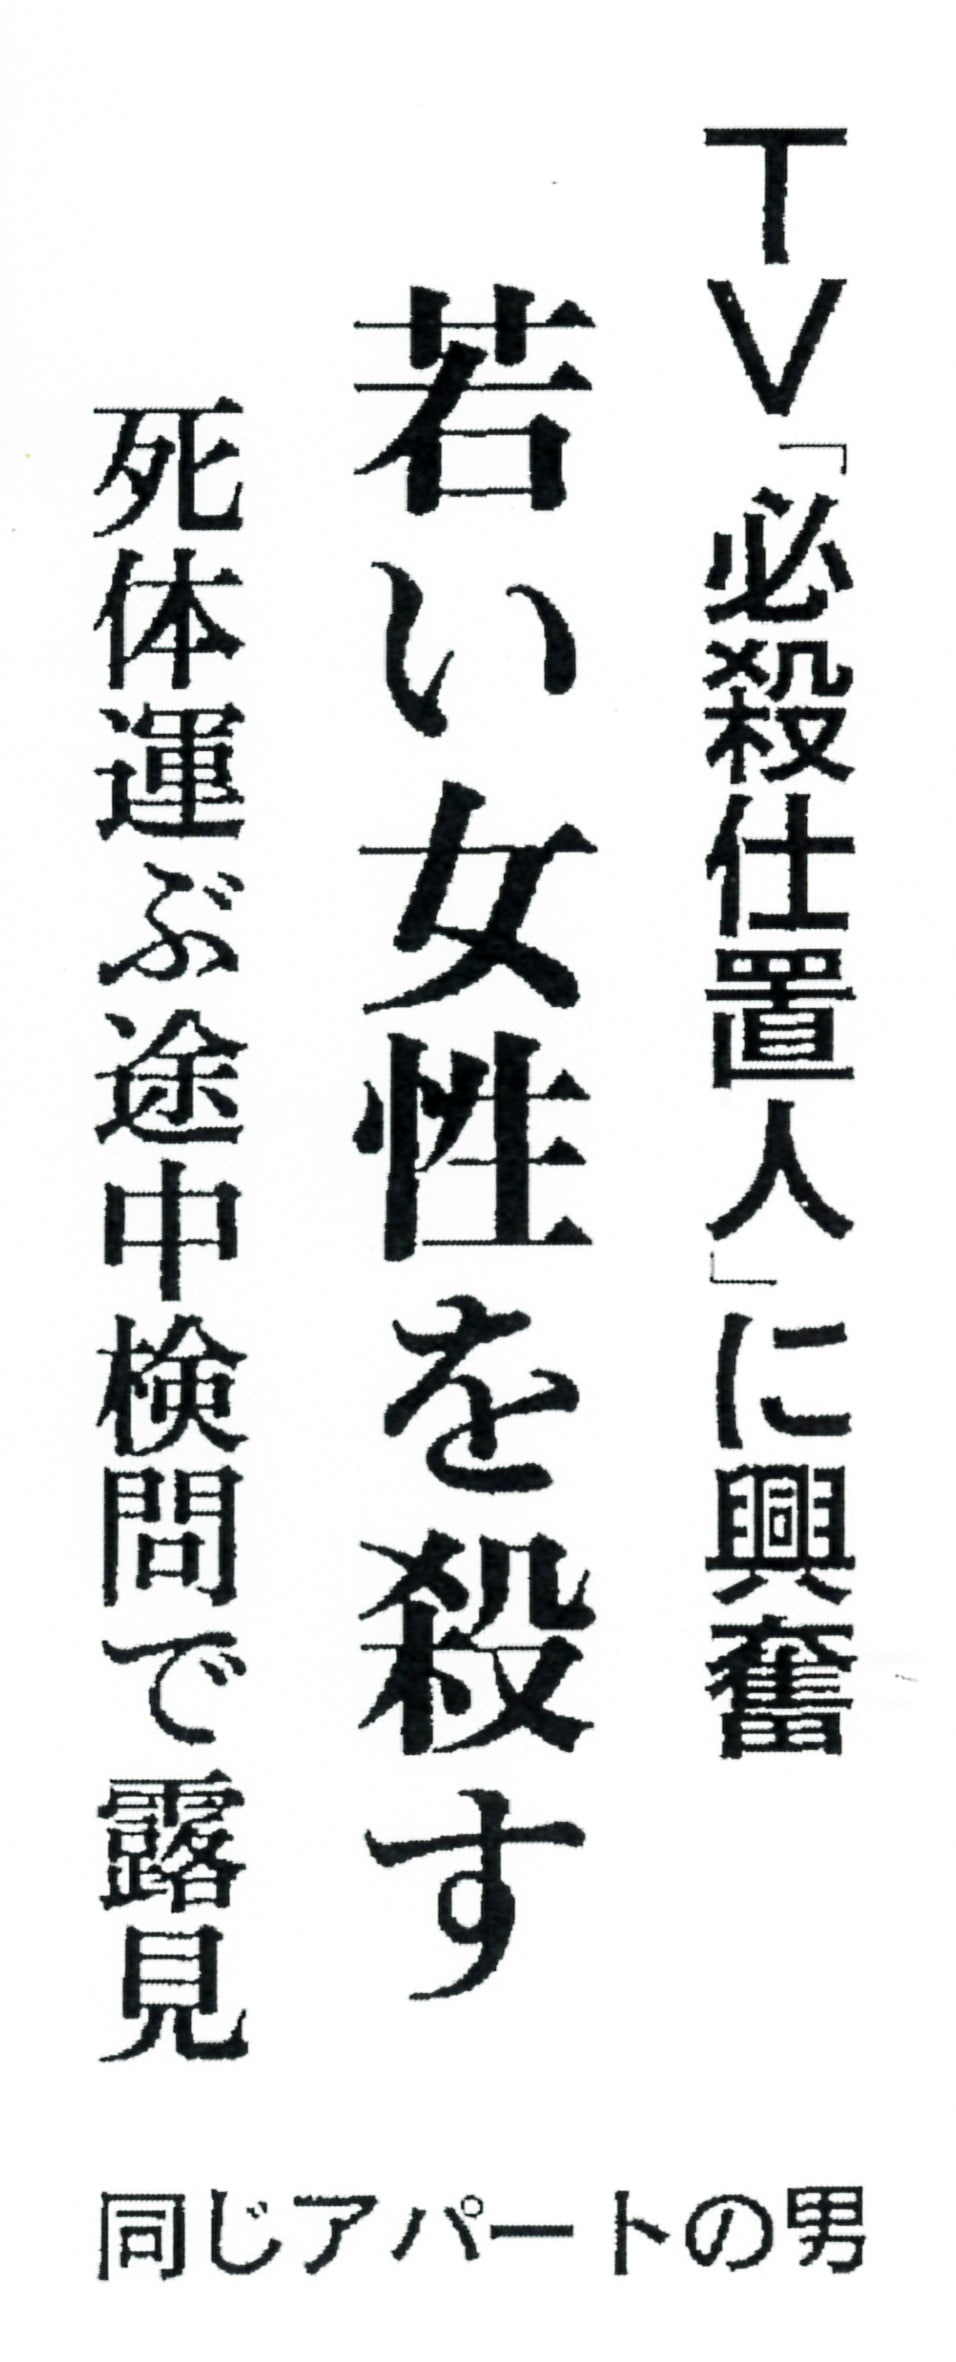 TV「必殺仕置人」に興奮
若い女性を殺す
死体運ぶ途中検問で露見
同じアパートの男